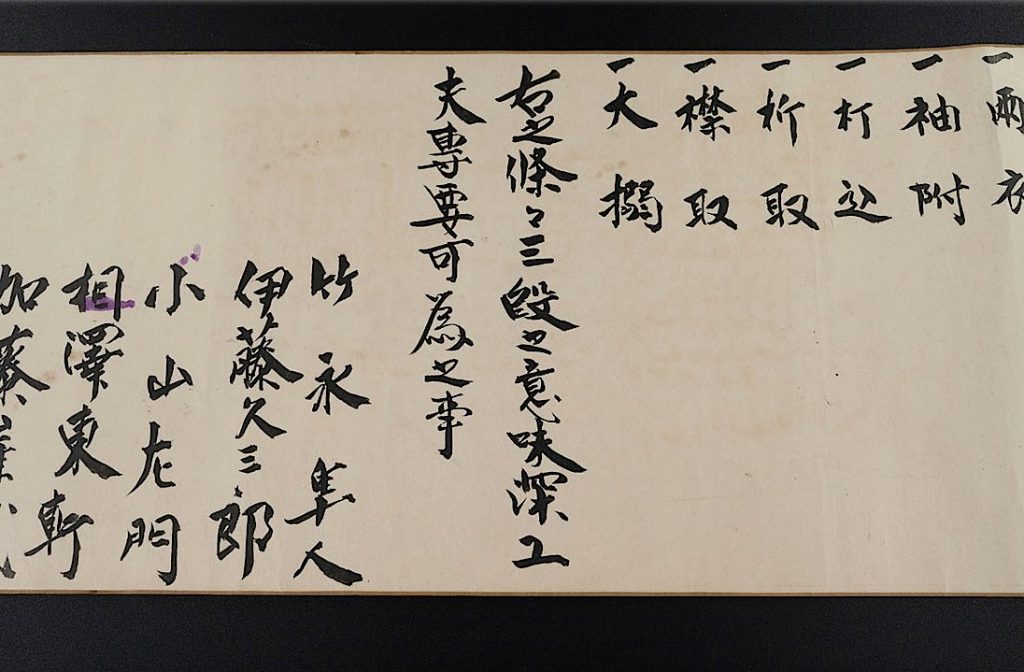 一 雨衣
一 袖附
一 打込
一 折取
一 襟取
一 大搦
右之條々三段之意味深工
夫專要可為之事
竹永隼人
伊藤久三郎
小山左門
相澤東軒
加藤